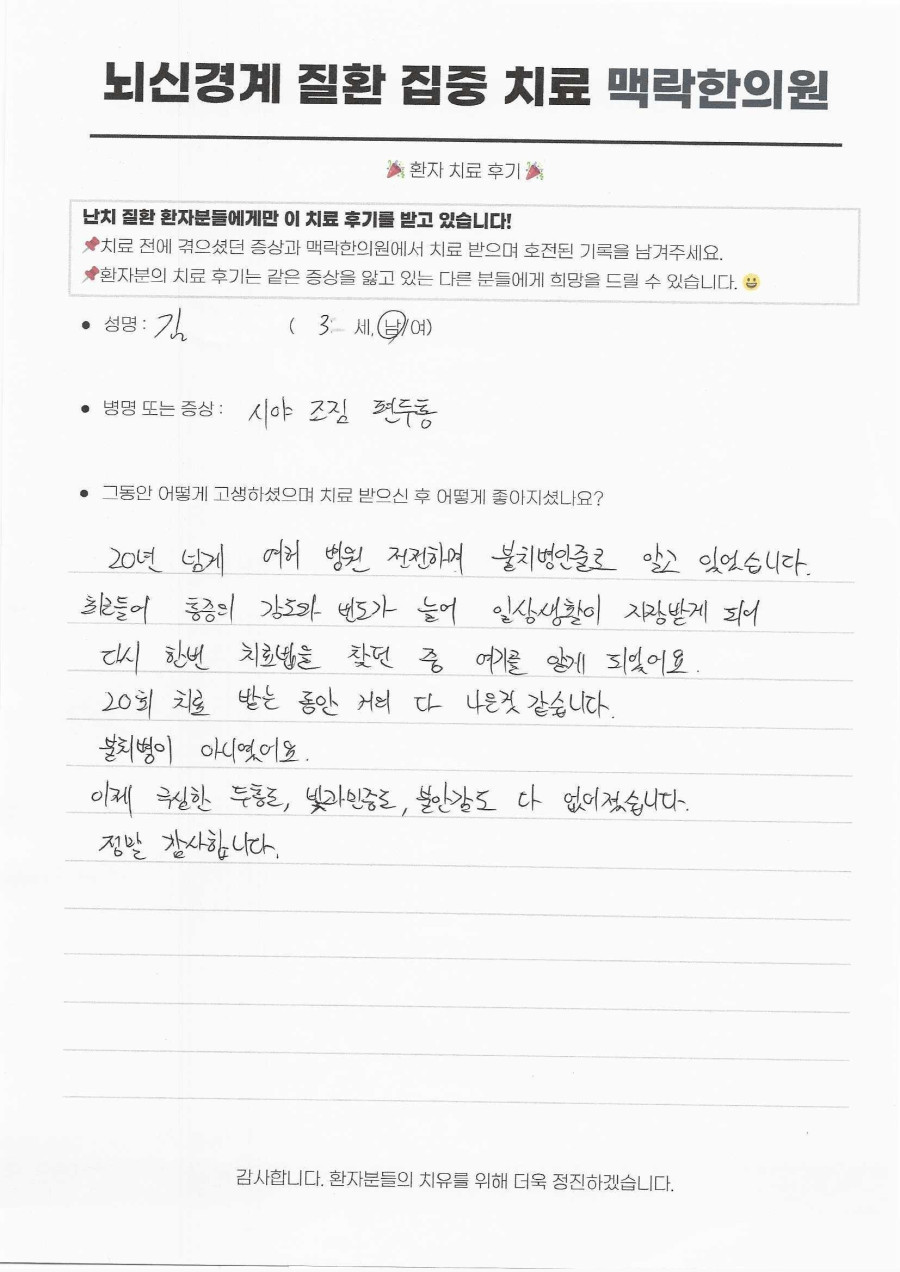 뇌신경계 질환 집중 치료 맥락한의원
🎉 환자 치료 후기 🎉
난치 질환 환자분들에게만 이 치료 후기를 받고 있습니다!
📌치료 전에 겪으셨던 증상과 맥락한의원에서 치료 받으며 호전된 기록을 남겨주세요.
📌환자분의 치료 후기는 같은 증상을 앓고 있는 다른 분들에게 희망을 드릴 수 있습니다. 😀
• 성명 : 김 ( 3 세, 남/여)
• 병명 또는 증상 : 시야 조짐 편두통
• 그동안 어떻게 고생하셨으며 치료 받으신 후 어떻게 좋아지셨나요?
20년 넘게 여러 병원 전전하며 불치병인줄로 알고 있었습니다.
최근들어 통증의 강도와 빈도가 늘어 일상생활이 지장받게 되어
다시 한번 치료법을 찾던 중 여기를 알게 되었어요.
20회 치료 받는 동안 거의 다 나은것 같습니다.
불치병이 아니였어요.
이제 극심한 두통도, 빛과민증도, 불안감도 다 없어졌습니다.
정말 감사합니다.
감사합니다. 환자분들의 치유를 위해 더욱 정진하겠습니다.